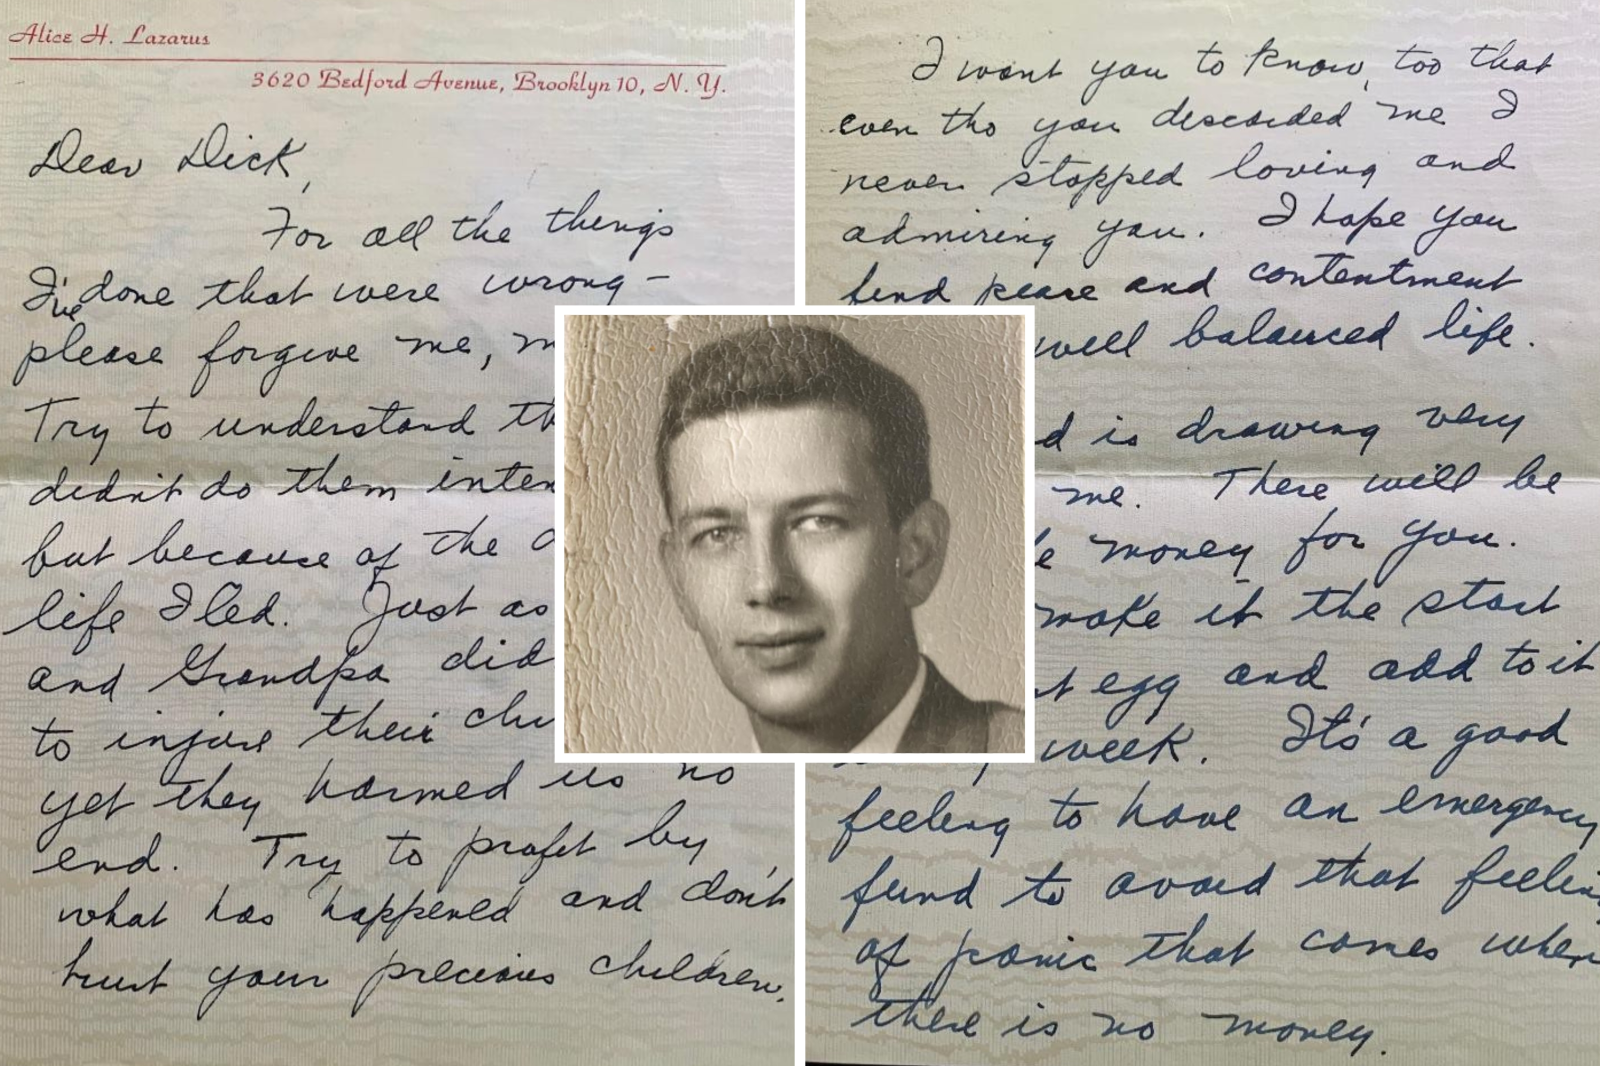 Alice H. Lazarus
3620 Bedford Avenue, Brooklyn 10, N. Y.
Dear Dick,
For all the things
I've done that were wrong –
please forgive me,
Try to understand
didn't do them
but because of the
life I led. Just as
and Grandpa did
to injure their
yet they harmed us no
end. Try to profit by
what has happened and don't
hurt your precious children.
I want you to know, too that
even tho you descarded me I
never stopped loving and
admiring you. I hope you
find peace and contentment
well balanced life.
is drawing very
me. There will be
money for you.
make it the start
egg and add to it
week. It's a good
feeling to have an emergency
fund to avoid that
of panic that comes when
there is no money.